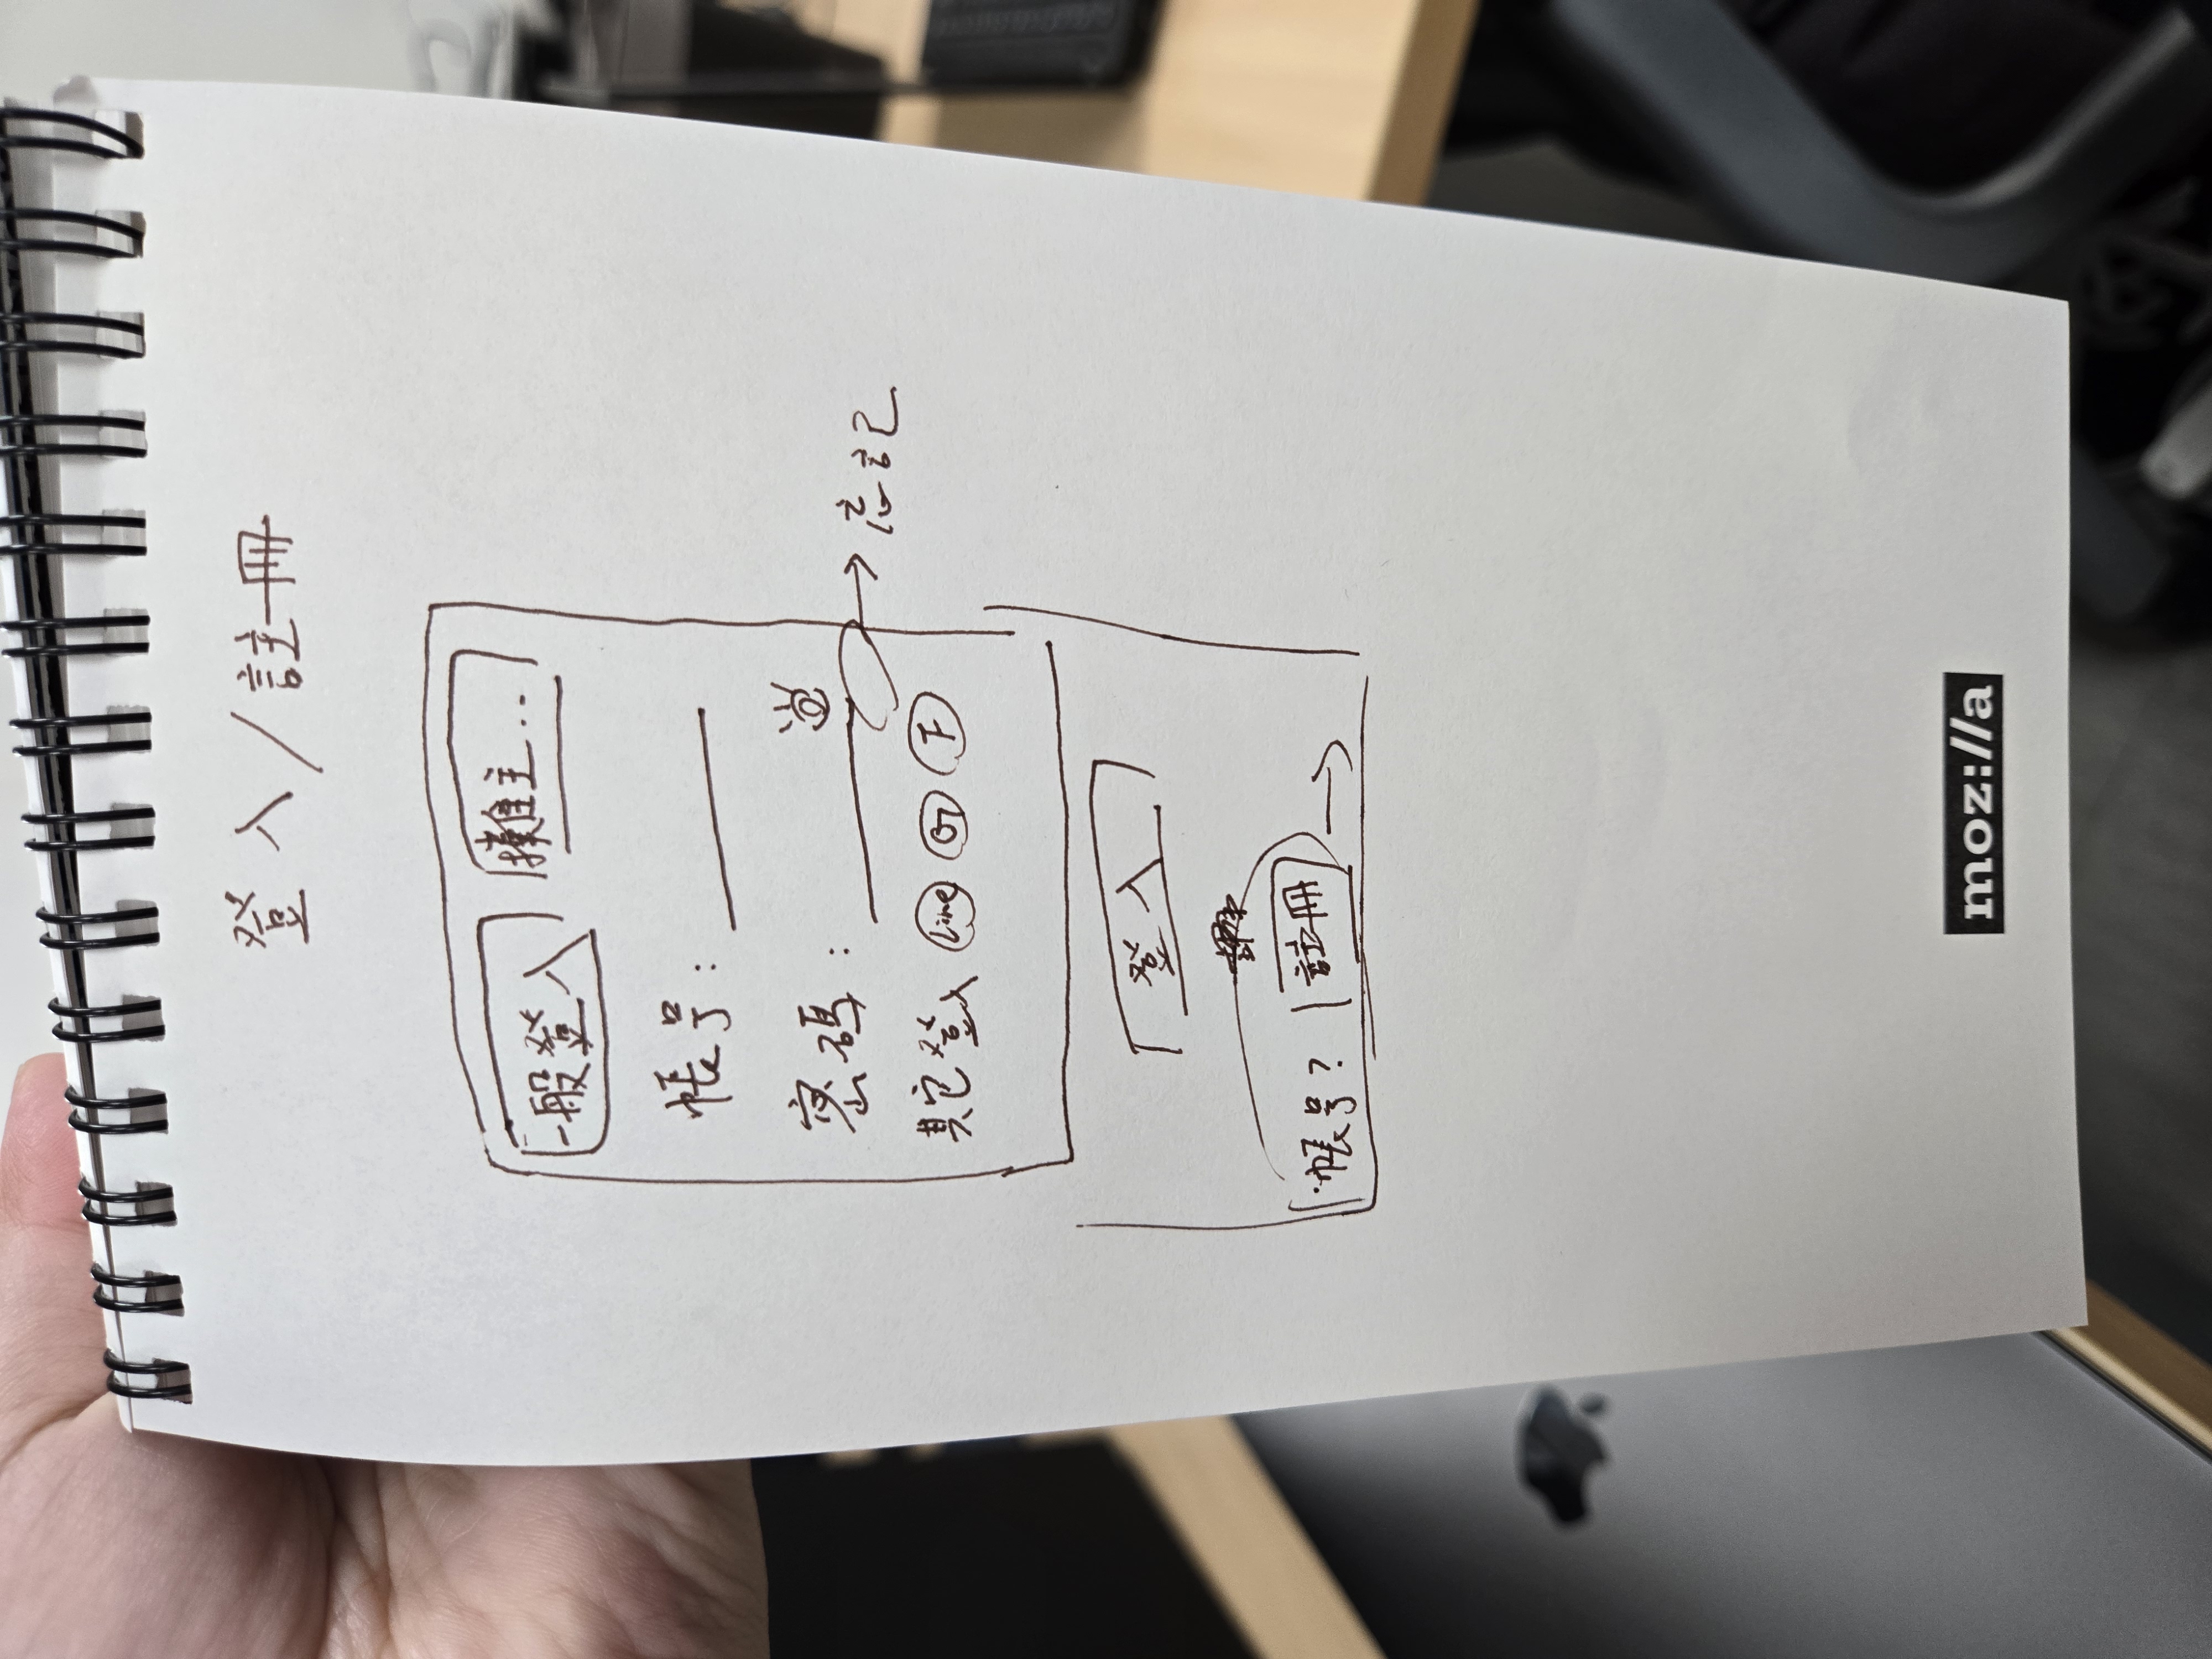 登入/註冊
一般登入 攤主..
帳号:
密碼:
忘記
其它登入 Line G F
登入
帳号? 註冊
moz://a